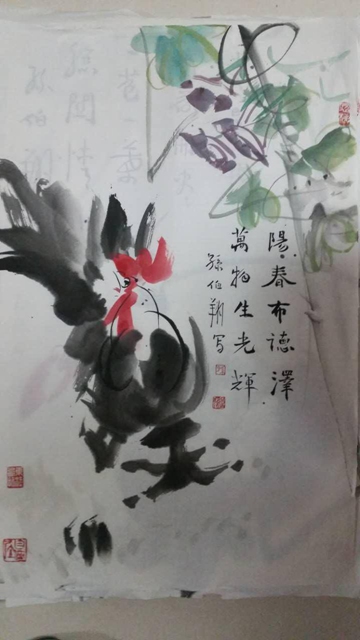 陽春布德澤
萬物生光輝
孫伯翔写